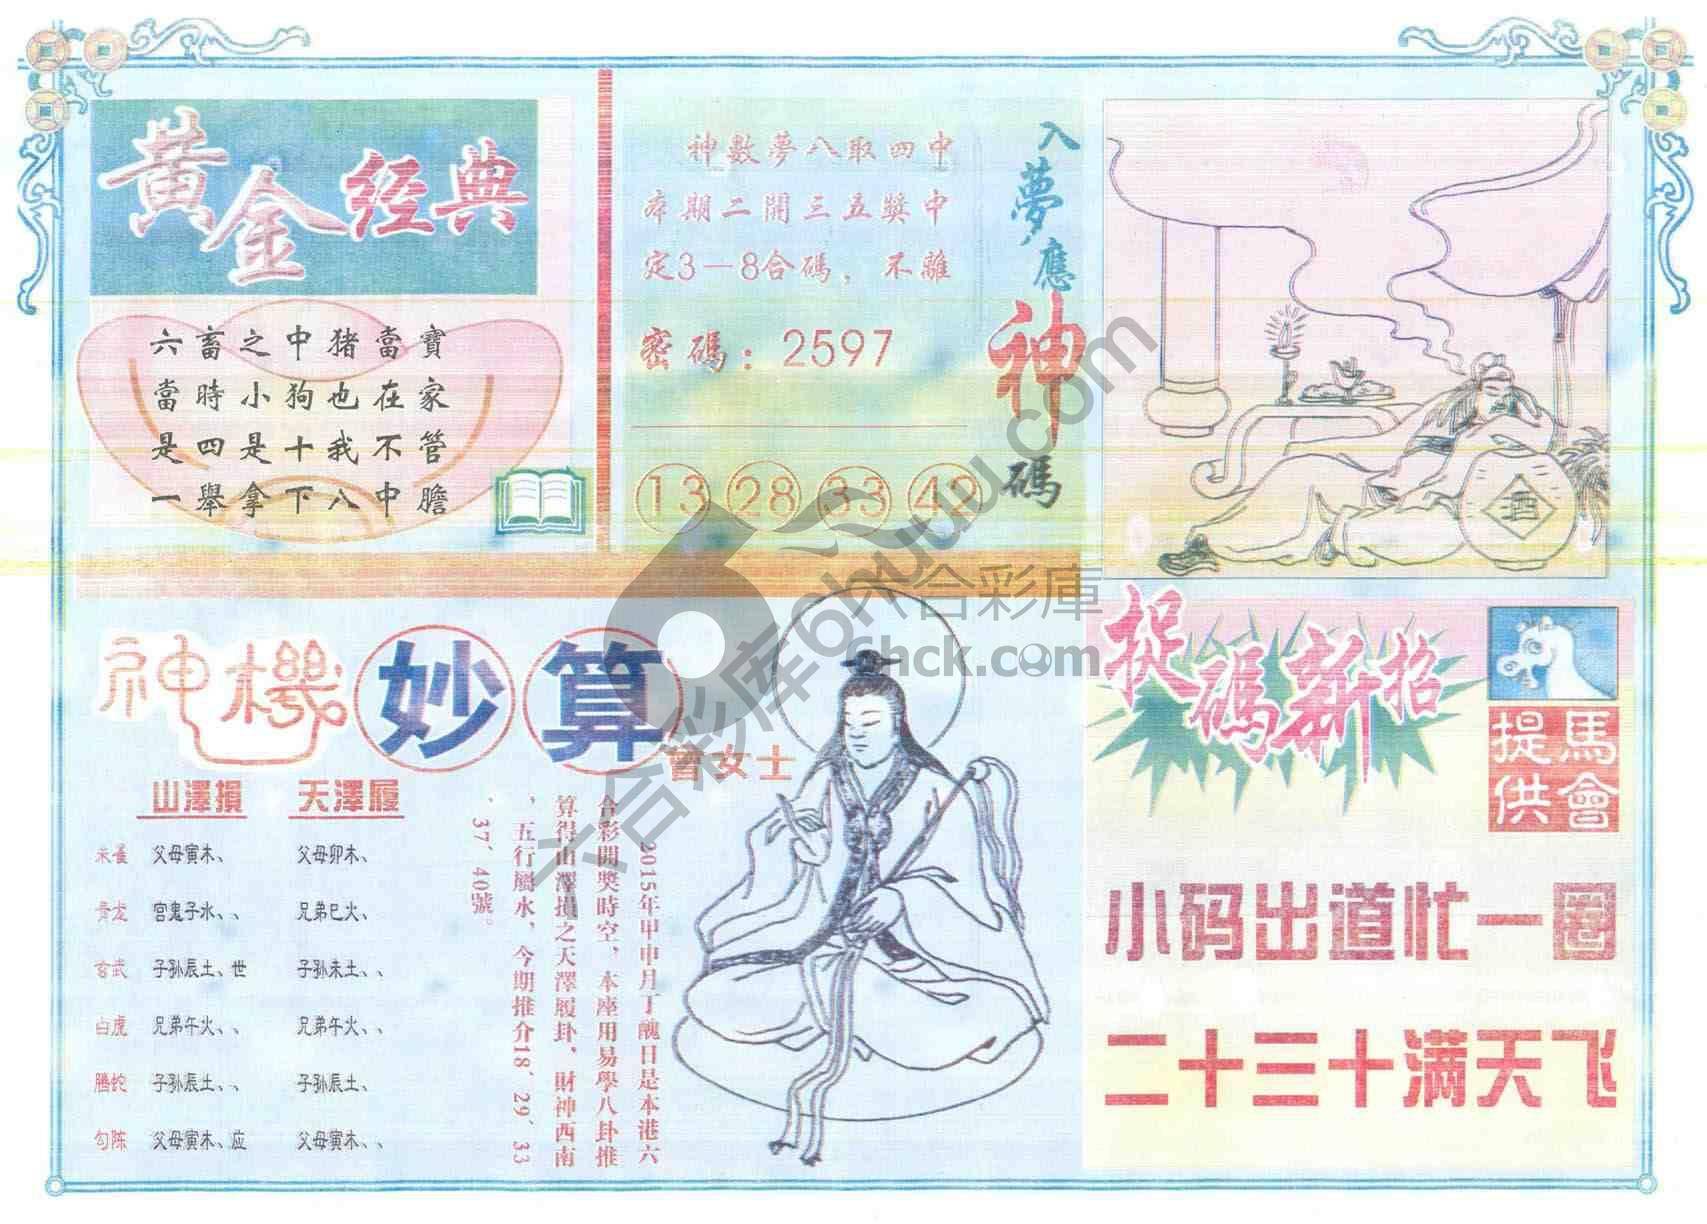 黃金经典
六畜之中猪當寶
當時小狗也在家
是四是十我不管
一舉拿下八中膽
神數夢八取四中
本期二開三五獎中
定3－8合碼，不離
密碼：2597
13 28 33 42
入夢應神碼
酒
神機妙算
曾女士
山澤損 天澤履
朱雀 父母寅木、 父母卯木、
青龙 宫鬼子水、、 兄弟巳火、
玄武 子孙辰土、世 子孙未土、、
白虎 兄弟午火、、 兄弟午火、、
腾蛇 子孙辰土、、 子孙辰土、
勾陈 父母寅木、应 父母寅木、、
2015年甲申月丁醜日是本港六
合彩開獎時空，本座用易學八卦推
算得山澤損之天澤履卦，財神西南
，五行屬水，今期推介18、29、33
、37、40號。
捉碼新招
馬會提供
小码出道忙一圈
二十三十满天飞
六合彩库6htuu.com
六合彩庫
6hck.com